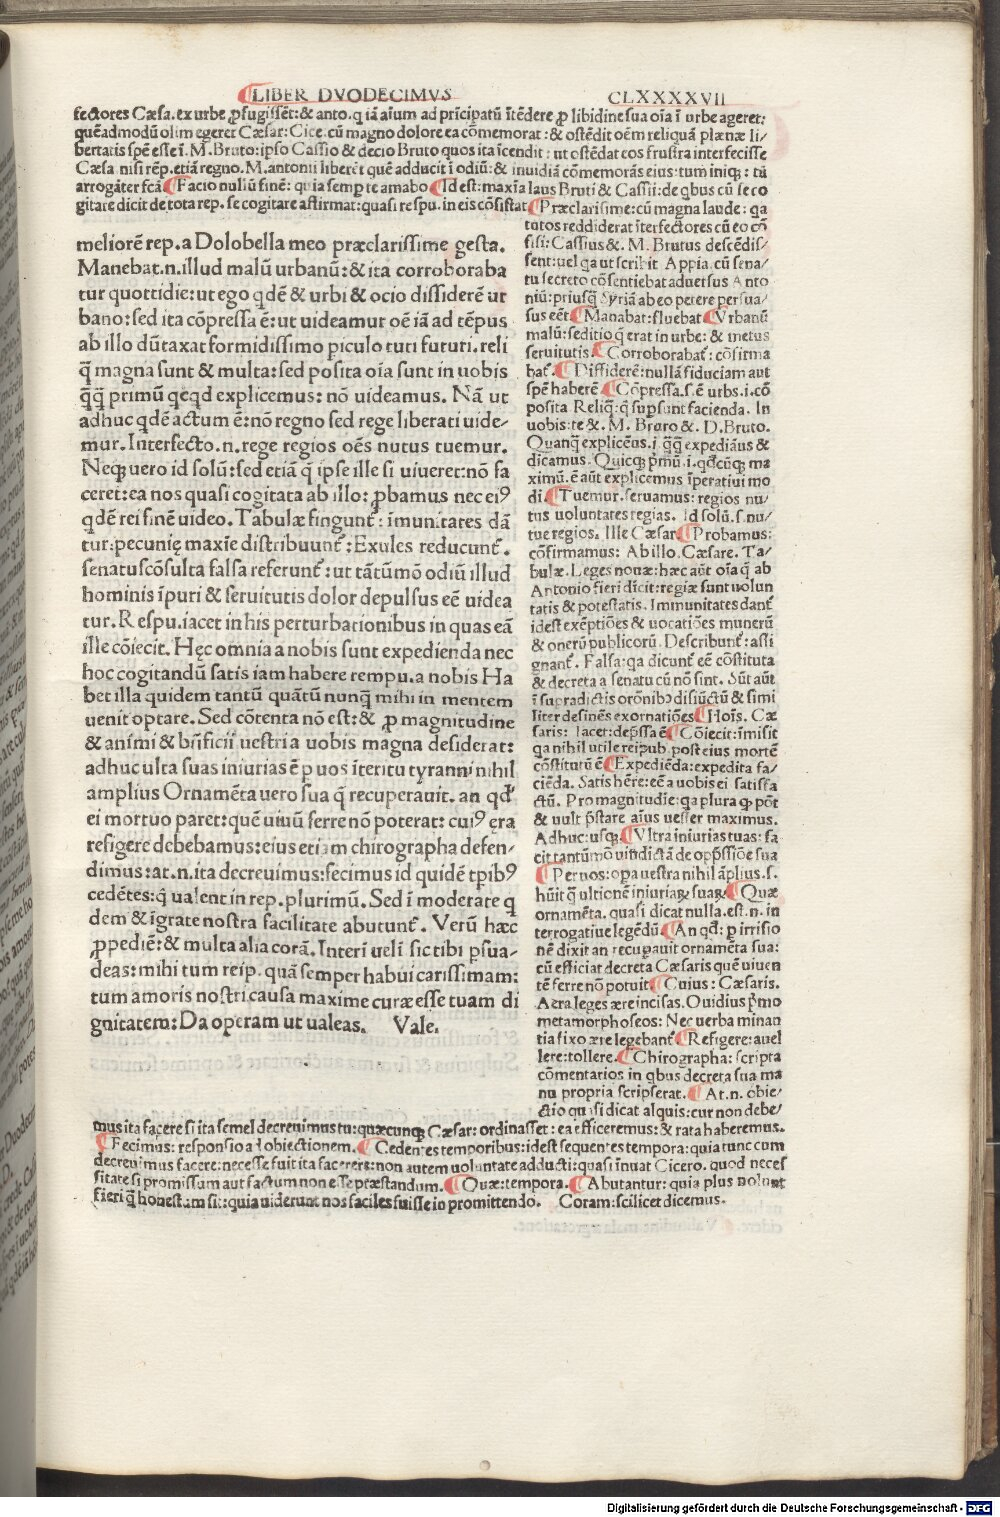 LIBER DVODECIMVS CLXXXXVII
fectores Cæsa. ex urbe ꝓfugissēt: & anto. q iā aīum ad prīcipatū ītēdere ꝓ libidine sua oīa ī urbe ageret:
quēadmodū olim egeret Cæsar: Cice. cū magno dolore ea cōmemorat: & ostēdit oēm reliquā plænæ li/
bertatis spē esse ī. M. Bruto: ipso Cassio & decio Bruto quos ita īcendit: ut ostēdat eos frustra interfecisse
Cæsa. nisi rep. etiā regno. M. antonii liberēt quē adducit ī odiū: & inuidiā cōmemorās eius: tum iniq; : tū
arrogāter fcā Facio nullū finē: quia semp te amabo Id est: maxīa laus Bruti & Cassii: de qbus cū se co
gitare dicit de tota rep. se cogitare affirmat: quasi respu. in eis cōsistat Præclarissime: cū magna laude: qa
meliorē rep. a Dolobella meo præclarissime gesta.
Manebat. n. illud malū urbanū: & ita corroboraba
tur quottidie: ut ego qdē & urbi & ocio dissiderē ur
bano: sed ita cōpressa ē: ut uideamur oē iā ad tēpus
ab illo dūtaxat formidissimo piculo tuti futuri. reli
q̄ magna sunt & multa: sed posita oīa sunt in uobis
q̄q̄ primū qeqd explicemus: nō uideamus. Nā ut
adhuc qdē actum ē: nō regno sed rege liberati uide-
mur. Interfecto. n. rege regios oēs nutus tuemur.
Neq; uero id solū: sed etiā q̄ ipse ille si uiueret: nō fa
ceret: ea nos quasi cogitata ab illo: ꝓbamus nec eiꝰ
qdē rei finē uideo. Tabulæ fingunt̄: īmunitates dā
tur: pecunię maxīe distribuunt̄: Exules reducunt̄.
senatuscōsulta falsa referunt̄: ut tātūmō odiū illud
hominis īpuri & seruitutis dolor depulsus eē uidea
tur. Respu. iacet in his perturbationibus in quas eā
ille cōiecit. Hęc omnia a nobis sunt expedienda nec
hoc cogitandū satis iam habere rempu. a nobis Ha
bet illa quidem tantū quātū nunq̄ mihi in mentem
uenit optare. Sed cōtenta nō est: & ꝓ magnitudine
& animi & bn̄ficii uestri a uobis magna desiderat:
adhuc ulta suas iniurias ē p uos īteritu tyranni nihil
amplius Ornamēta uero sua q̄ recuperauit. an qd
ei mortuo paret: quē uiuū ferre nō poterat: cuiꝰ ęra
refigere debebamus: eius etiam chirographa defen-
dimus: at. n. ita decreuimus: fecimus id quidē tpibꝰ
cedētes: q̄ ualent in rep. plurimū. Sed ī moderate q
dem & īgrate nostra facilitate abutunt̄. Verū hæc
ꝓpediē: & multa alia corā. Interī ueli sic tibi psua-
deas: mihi tum reip. quā semper habui carissimam:
tum amoris nostri causa maxime curæ esse tuam di
gnitatem: Da operam ut ualeas. Vale.
tutos reddiderat īterfectores cū eo cō
sisi: Cassius &. M. Brutus descēdis/
sent: uel qa ut scribit Appia. cū sena/
tu secreto cōsentiebat aduersus Anto
niū: priusq̄ Syriā ab eo petere persua/
sus eēt Manabat: fluebat Vrbanū
malū: seditio q̄ erat in urbe: & metus
seruitutis Corroborabat̄: cōfirma
bat̄. Dissiderē: nullā fiduciam aut
spē haberē Cōpressa. s. ē urbs. i. cō
posita Reliq̄: q̄ supsunt facienda. In
uobis: te &. M. Bruto &. D. Bruto.
Quanq̄ explicēus. i q̄q̄ expediāus &
dicamus. Quicq; p̄mū. i. qdcūq; ma
ximū. ē aūt explicemus īperatiui mo
di. Tuemur. seruamus: regios nu/
tus uoluntates regias. Id solū. s. nu/
tue regios. Ille Cæsar Probamus:
cōfirmamus: Ab illo. Cæsare. Ta/
bulæ. Leges nouæ: hæc aūt oīa q̄ ab
Antonio fieri dīcit: regiæ sunt uolun
tatis & potestatis. Immunitates dant̄
id est exēptiōes & uocatiōes munerū
& onerū publicorū. Describunt̄: assi
gnant̄. Falsa: qa dicunt̄ eē cōstituta
& decreta a senatu cū nō sint. Sūt aūt
ī supradictis orōnibꝰ disiūctū & simi
liter desinēs exornatiōes Hoīs. Cæ
saris: Iacet: depssa ē Cōiecit: īmisit
qa nihil utile reipub. post eius mortē
cōstitutū ē Expediēda: expedita fa/
ciēda. Satis hēre: eē a uobis ei satisfa
ctū. Pro magnitudīe: qa plura q; pōt
& uult p̄stare aīus uester maximus.
Adhuc: usq; Vltra iniurias tuas: fa
cit tantūmō uindictā de opp̄ssiōe sua
Per uos: opa uestra nihil āplius. s.
hūit q̄ ultionē iniuriaꝝ suaꝝ Quæ
ornamēta. quasi dicat nulla. est. n. in
terrogatiue legēdū An qd: p irrisio
nē dixit an recupauit ornamēta sua:
cū efficiat decreta Cæsaris quē uiuen
tē ferre nō potuit Cuius: Cæsaris.
Aera leges ære incisas. Ouidius p̄mo
metamorphoseos: Nec uerba minan
tia fixo ære legebant̄ Refigere: auel
lere: tollere. Chirographa: scripta
cōmentarios in qbus decreta sua ma
nu propria scripserat. At. n. obie/
ctio quasi dicat alquis: cur non debe/
mus ita facere si ita semel decreuimus tu: quæcunq; Cæsar: ordinasset: ea efficeremus: & rata haberemus.
Fecimus: responsio ad obiectionem. Cedentes temporibus: idest sequentes tempora: quia tunc cum
decreuimus facere: necesse fuit ita facere: non autem uoluntate adducti: quasi īnuat Cicero. quod neces
sitate si promissum aut factum non esse præstandum. Quæ: tempora. Abutantur: quia plus uolunt
fieri q̄ honestum sit: quia uiderunt nos faciles fuisse in promittendo. Coram: scilicet dicemus.
Digitalisierung gefördert durch die Deutsche Forschungsgemeinschaft - DFG